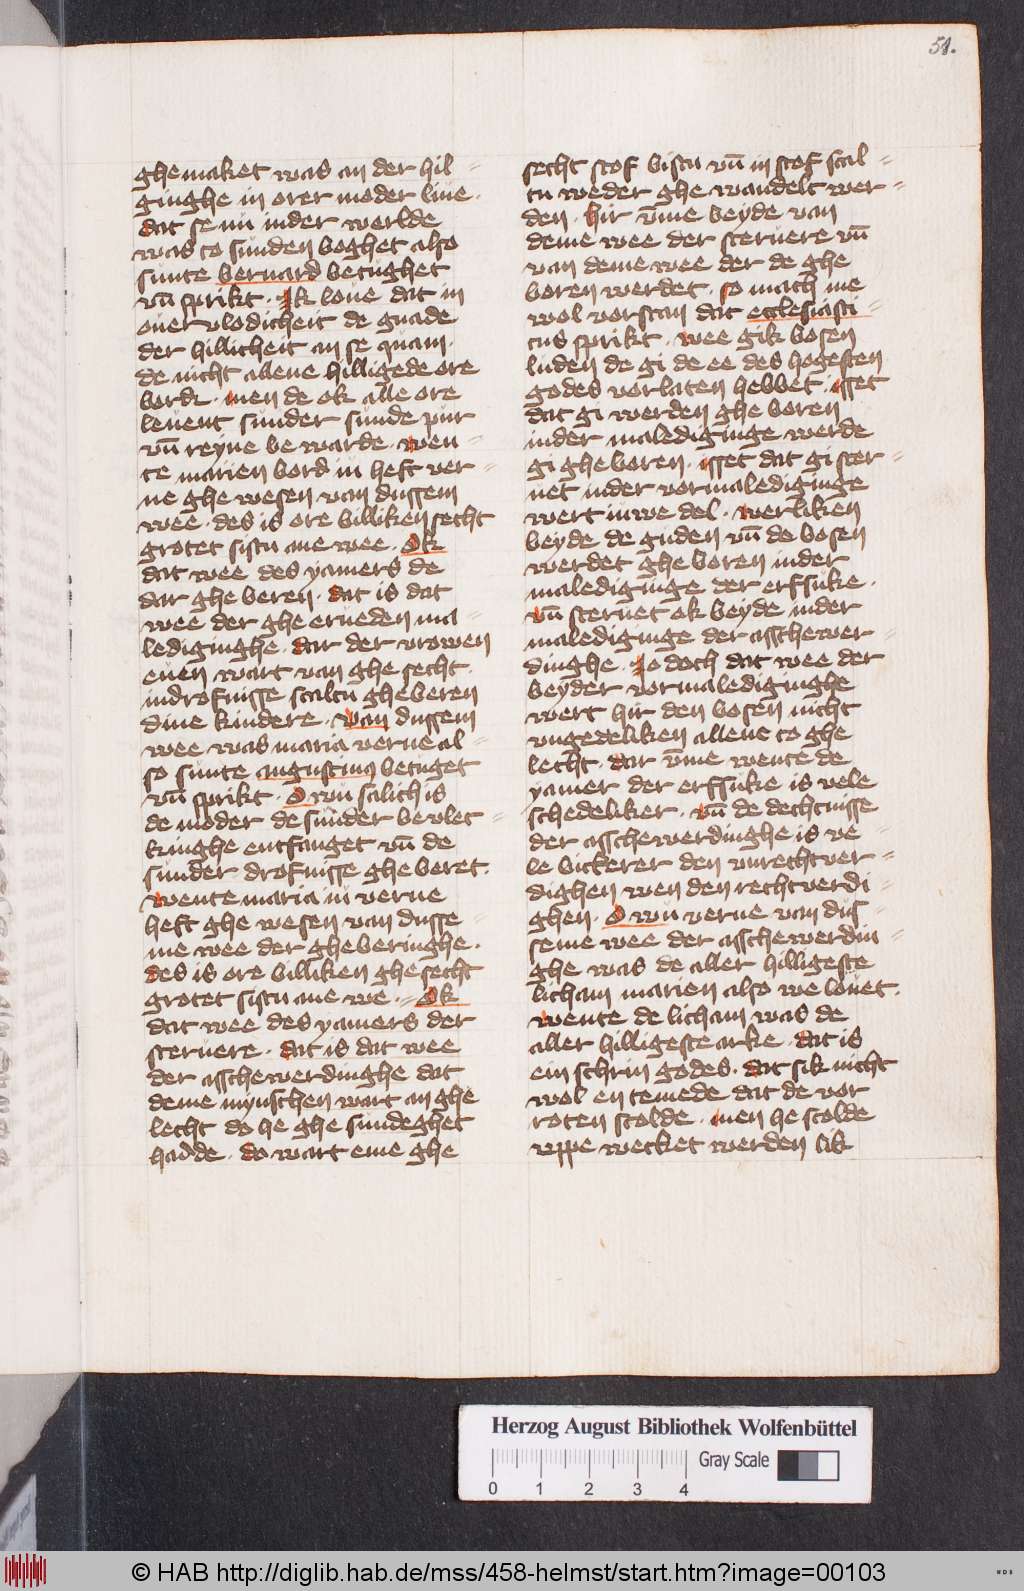 51.
ghemaket was an der hil=
ginghe in orer moder liue.
dat se nu inder werlde
was to sunden boghet also
sunte bernard betughet
vn̄ sprikt. Ik loue dat in
ouervlodicheit de gnade
der hillicheit an se quam.
de nicht allene hilligede ore
bord. men de ok alle ore
leuent sunder sunde pur
vn̄ reyne bewarde. wen=
te marien bord in heft ver=
ne ghe wesen van dussem
wee. des is ore billiken secht
grotet sistu ane wee. Ok
dat wee des yamers de
dar ghe beren. dat is dat
wee der ghe erueden ma=
ledigınghe. dar der vrowen
euen wart van ghe secht.
in drofnisse scaltu gheberen
dine kindere. van dussem
wee was maria verne al=
so sunte augustinus betuget
vn̄ sprikt. O wu salich is
de moder de sunder bevlec=
kinghe entfanget vn̄ de
sunder drofnisse ghe beret.
wente maria in verne
heft ghe wesen van dusse=
me wee der gheberinghe.
des is ore billiken ghesecht
grotet sistu ane we. = Ok
dat wee des yamers der
steruere. dat is dat wee
der asschewerdinghe dat
deme mynschen wart an ghe
lecht do he ghe sundeghet
hadde. do wart eme ghe
secht stof bistu vn̄ in stof scal=
tu weder ghe wandelt wer=
den. hir vm̄e beyde van
deme wee der steruere vn̄
van deme wee der de ghe
boren werdet. so mach me
wol vorstan dat ecclesiasti=
cus sprikt. wee gik bosen
luden de gi de ee des hogesten
godes vorlaten hebbet. isset
dat gi werden ghe boren
inder malediginge werde
gi gheboren. isset dat gi ster=
uet inder vormalediginge
wert iuwe del. werliken
beyde de guden vn̄ de bosen
werdet ghe boren inder
malediginge der erfsuke.
vn̄ steruet ok beyde inder
malediginge der asschewer=
dinghe. Jo doch dat wee der
beyder vormalediginghe
wert hir den bosen nicht
vngedeliken allene to ghe
lecht. dar vm̄e wente de
yamer der erfsuke is vele
schedeliker. vn̄ de dechtnisse
der asschewerdinghe is ve=
le bitterer den vnrechtver=
dighen wen den rechtverdi=
ghen. O wu verne van dus=
seme wee der asschewerdin=
ghe was de aller hilligeste
licham marien also we louet.
wente de licham was de
aller hilligeste arke. dat is
ein schrin godes. dat sik nicht
wol en temede dat de vor
roten scolde. men he scolde
vppe wecket werden lik
Herzog August Bibliothek Wolfenbüttel
Gray Scale
0 1 2 3 4
© HAB http://diglib.hab.de/mss/458-helmst/start.htm?image=00103